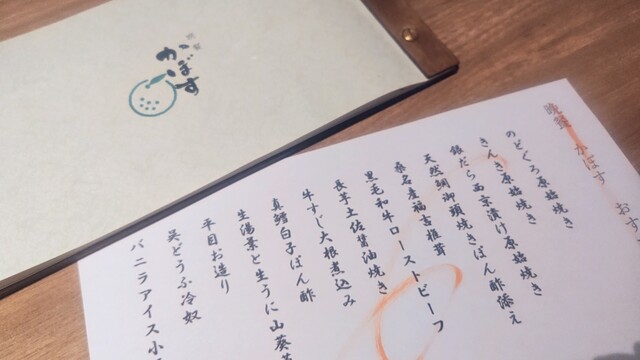 かぼす
晩餐 かぼす おす
のどくろ原始焼き
きんき原始焼き
銀だら西京漬け原始焼き
天然鯛御頭焼きぽん酢添え
桑名産福吉椎茸
黒毛和牛ローストビーフ
長芋土佐醤油焼き
牛すじ大根煮込み
真鱈白子ぽん酢
生湯葉と生うに山葵
平目お造り
呉どうふ冷奴
バニラアイス小